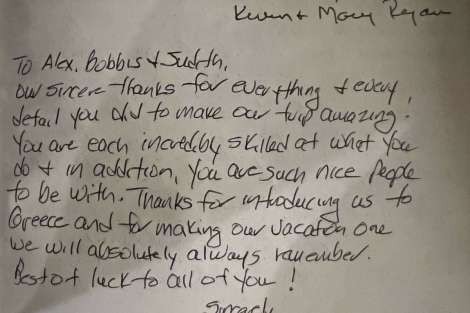 Kevin & Mary Regan
To Alex, Bobbis & Judith,
Our sincere thanks for everything & every
detail you did to make our trip amazing.
You are each incredibly skilled at what you
do & in addition, you are such nice people
to be with. Thanks for introducing us to
Greece and for making our vacation one
we will absolutely always remember.
Best of luck to all of you!